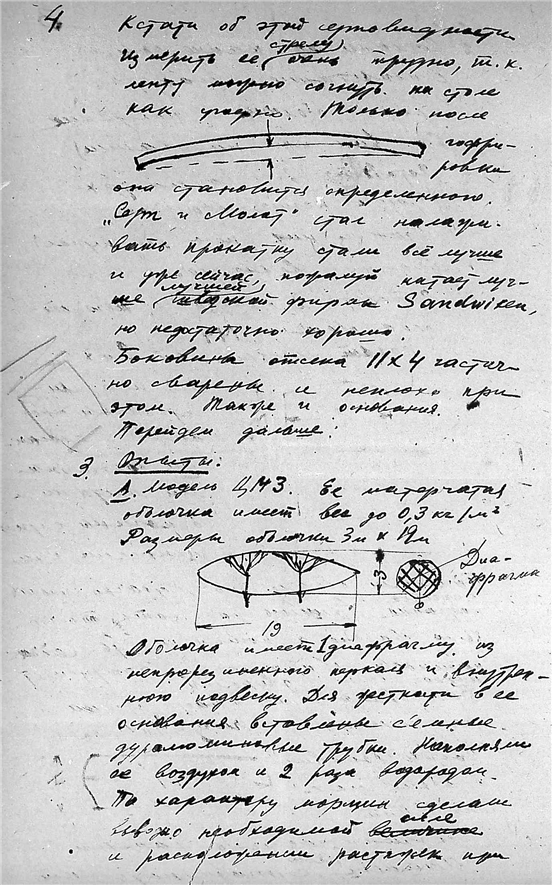 4.
Кстати об этой серповидности.
Измерить её стрелу очень трудно, т.к.
ленту можно согнуть на столе
как угодно. Только после
гофри-
ровки
она становится определенного.
„Серп и Молот" стал налажи-
вать прокатку стали всё лучше
и уже сейчас, пожалуй катает луч-
ше лучшей фирмы Sandwiken,
но недостаточно хорошо.
Боковины отсека 11х4 частич-
но сварены и неплохо при
этом. Также и основания.
Перейдем дальше:
3. Опыты:
А. Модель ЦМЗ. Её матерчатая
оболочка имеет вес до 0,3 кг/м²
Размеры оболочки 3м х 19м
Диа-
фрагма
3
19
Оболочка имеет 1 диафрагму из
непрорезиненного перкаля и внутрен-
нюю подвеску. Для жесткости в её
основания вставлены съемные
дуралюминовые трубки. Наполняли
её воздухом и 2 раза водородом.
По характеру морщин сделали
вывод о необходимой силе
и расположении растяжек при